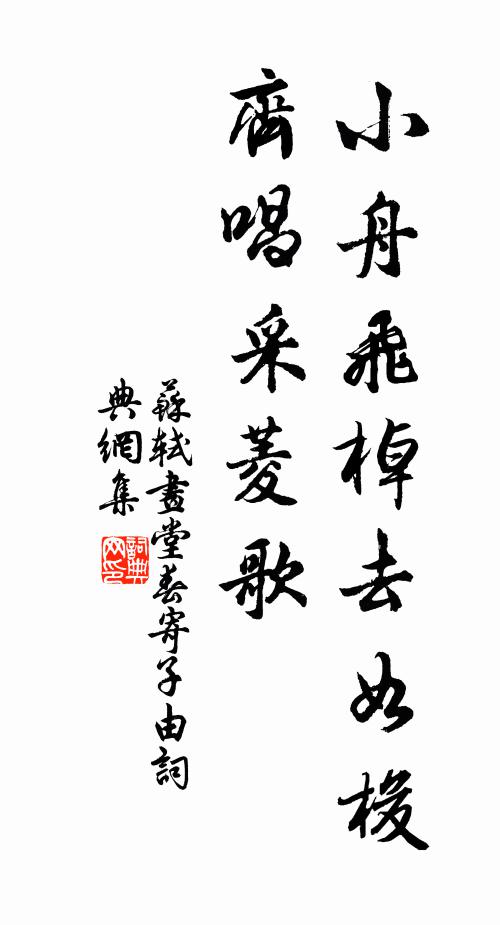 小舟飛棹去如梭
齊唱采菱歌
蘇軾畫堂春寄子由詞
典網集
詞典網印